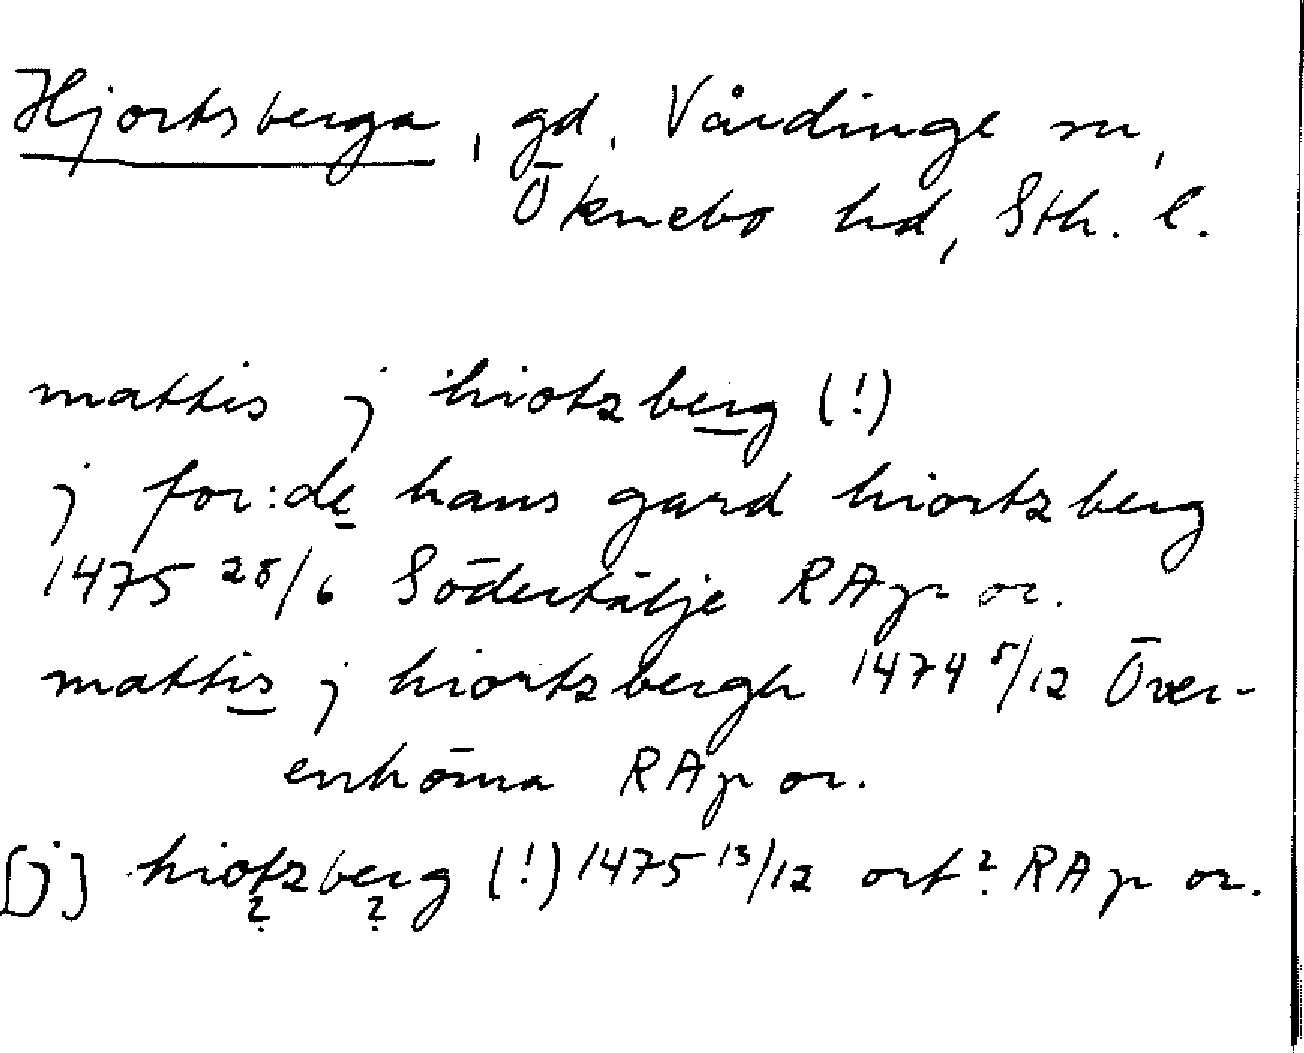 Hjortsberga, gd, Vårdinge sn,
Öknebo hd, Sth. l.
mattis j hiotzberg (!)
j for:de hans gard hiortzberg
1475 28/6 Södertälje RAp or.
mattis j hiortzbergh 1474 5/12 Över-
enhöma RAp or.
[j] hiotzberg (!) 1475 13/12 ort? RAp or.
? ?